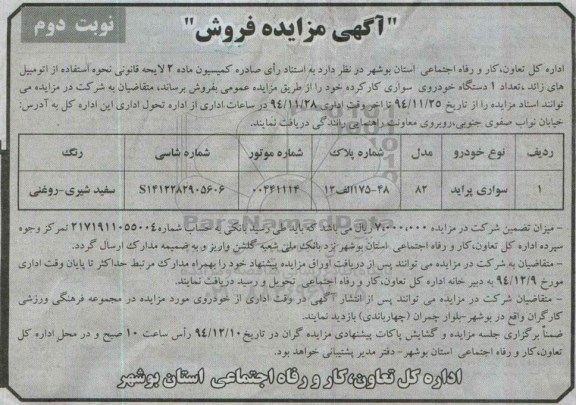 نوبت دوم
"آگهی مزایده فروش"
اداره کل تعاون،کار و رفاه اجتماعی استان بوشهر در نظر دارد به استناد رأی صادره کمیسیون ماده ۲ لایحه قانونی نحوه استفاده از اتومبیل
های زائد ،تعداد ۱ دستگاه خودروی سواری کارکرده خود را از طریق مزایده عمومی بفروش برساند، متقاضیان به شرکت در مزایده می
توانند اسناد مزایده را از تاریخ ۹۴/۱۱/۲۵ تا آخر وقت اداری ۹۴/۱۱/۲۸ در ساعات اداری از اداره تحول اداری این اداره کل به آدرس:
خیابان نواب صفوی جنوبی،روبروی معاونت راهنمایی رانندگی دریافت نمایند.
ردیف نوع خودرو مدل شماره پلاک شماره موتور شماره شاسی رنگ
۱ سواری پراید ۸۲ ۴۸-۱۷۵الف۱۲ ۰۰۴۴۱۱۱۴ S۱۴۱۲۲۸۲۹۰۵۶۰۶ سفید شیری-روغنی
- میزان تضمین شرکت در مزایده ۷،۰۰۰،۰۰۰ ریال می باشد که باید طی رسید بانکی به حساب شماره ۲۱۷۱۹۱۱۰۵۵۰۰۴ تمرکز وجوه
سپرده اداره کل تعاون،کار و رفاه اجتماعی استان بوشهر نزد بانک ملی شعبه گلشن واریز و به ضمیمه مدارک ارسال گردد.
- متقاضیان به شرکت در مزایده می توانند پس از دریافت اوراق مزایده پیشنهاد خود را بهمراه مدارک مرتبط حداکثر تا پایان وقت اداری
مورخ ۹۴/۱۲/۹ به دبیر خانه اداره کل تعاون،کار و رفاه اجتماعی تحویل و رسید دریافت نمایند.
- متقاضیان شرکت در مزایده می توانند پس از انتشار آگهی در وقت اداری از خودروی مورد مزایده در مجموعه فرهنگی ورزشی
کارگران واقع در بوشهر-بلوار چمران (چهارباندی) بازدید نمایند.
ضمناً برگزاری جلسه مزایده و گشایش پاکات پیشنهادی مزایده گران در تاریخ ۹۴/۱۲/۱۰ رأس ساعت ۱۰ صبح و در محل اداره کل
تعاون،کار و رفاه اجتماعی استان بوشهر- دفتر مدیر پشتیبانی خواهد بود.
اداره کل تعاون،کار و رفاه اجتماعی استان بوشهر
ParsNamadData